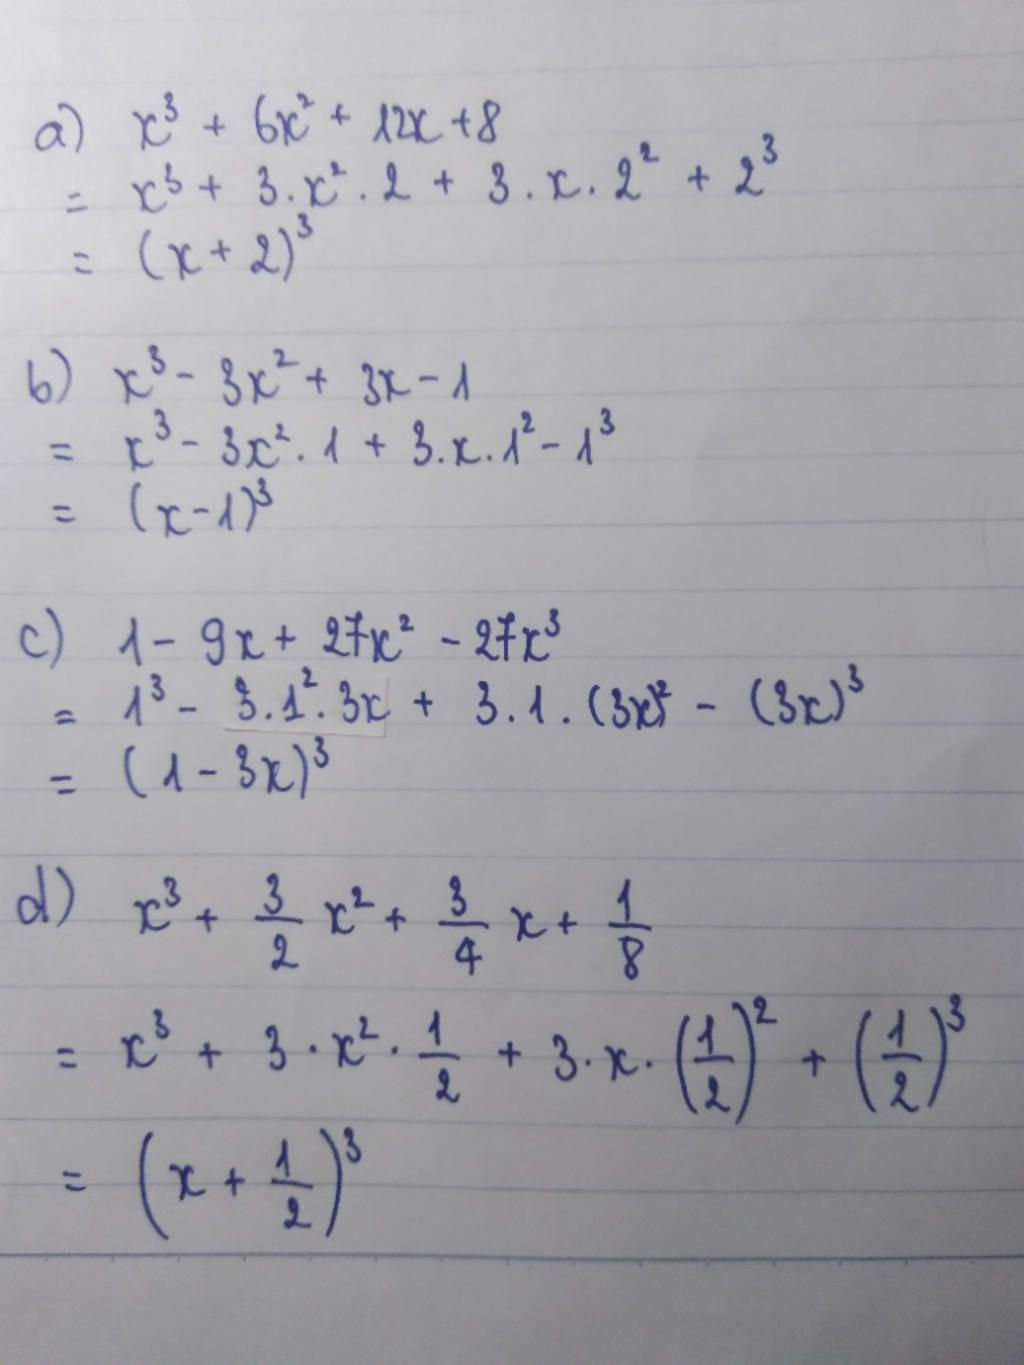 a) x³ + 6x² + 12x + 8
= x³ + 3.x².2 + 3.x.2² + 2³
= (x + 2)³
b) x³ - 3x² + 3x - 1
= x³ - 3x².1 + 3.x.1² - 1³
= (x - 1)³
c) 1 - 9x + 27x² - 27x³
= 1³ - 3.1².3x + 3.1.(3x)² - (3x)³
= (1 - 3x)³
d) x³ + 3/2 x² + 3/4 x + 1/8
= x³ + 3.x².1/2 + 3.x.(1/2)² + (1/2)³
= (x + 1/2)³